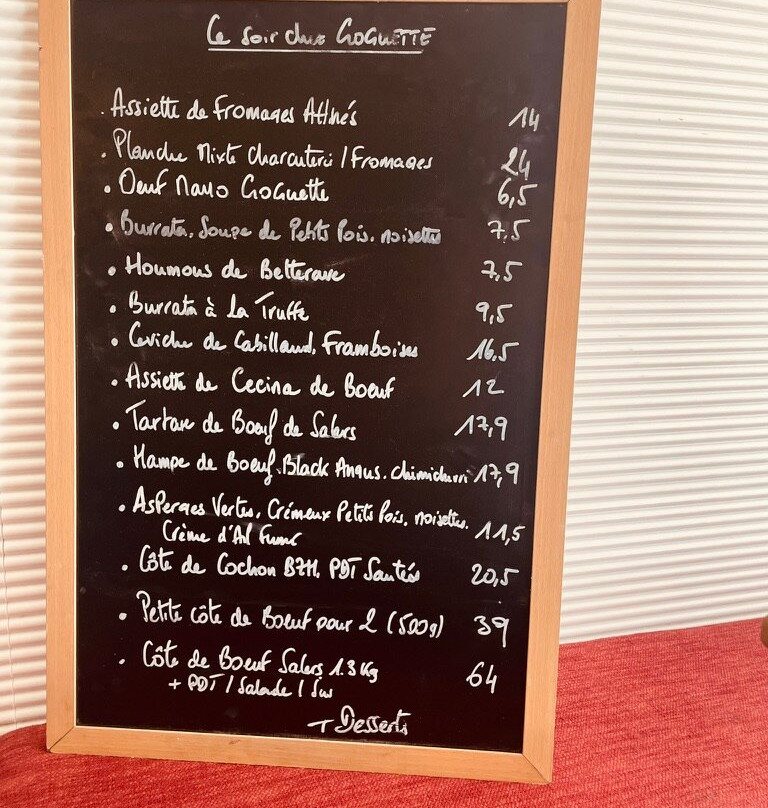 Ce soir chez GOGUETTE
. Assiette de Fromages Affinés 14
. Planche Mixte Charcuterie / Fromages 24
. Oeuf Mayo GoGuette 6,5
. Burrata. Soupe de Petits Pois. noisettes 7,5
. Houmous de Betterave 7,5
. Burrata à la Truffe 9,5
. Ceviche de Cabillaud, Framboises 16,5
. Assiette de Cecina de Boeuf 12
. Tartare de Boeuf de Salers 17,9
. Hampe de Boeuf. Black Angus. chimichurri 17,9
. Asperges Vertes, Crémeux Petits Pois, noisettes.
Crème d'Ail Fumé 11,5
. Côte de Cochon BZH, PDT Sautées 20,5
. Petite côte de Boeuf pour 2 (500g) 39
. Côte de Boeuf Salers 1.3 Kg 64
+ PDT / Salade / Jus
Desserts